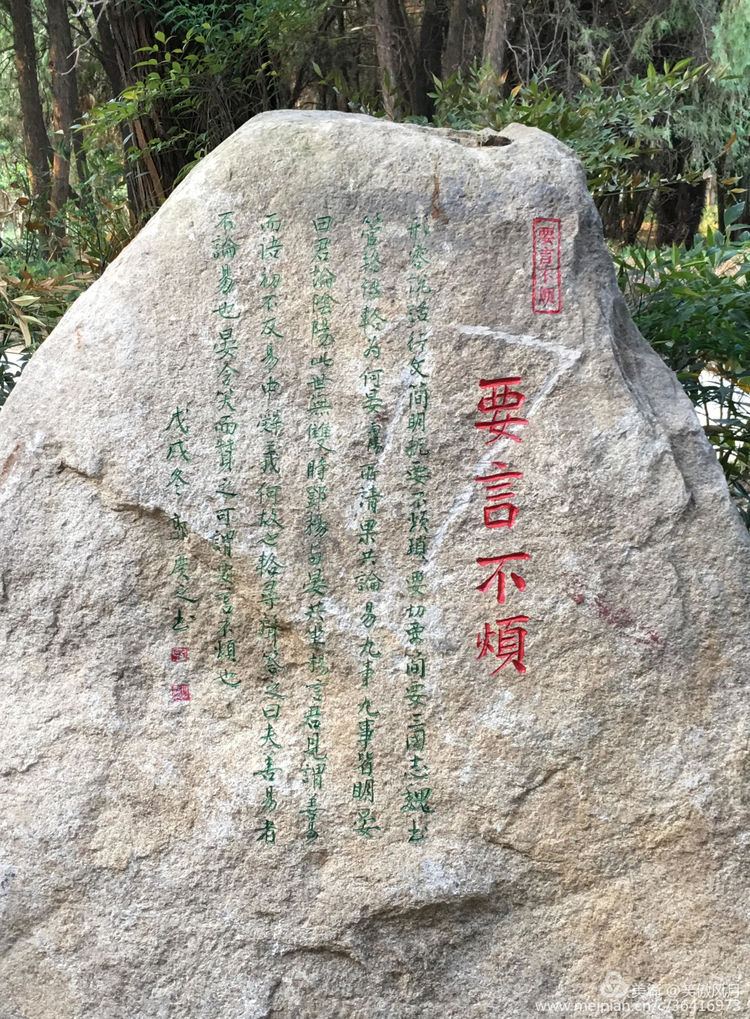 要言不煩
要言不煩
形容說話行文簡明扼要不煩瑣要切要簡要三國志魏书
管輅傳輅为何晏所請果共論易九事九事皆明晏
曰君論陰陽此世無雙時鄧颺與晏共坐颺言君見謂善易
而语初不及易中辭義何故也輅尋聲答之曰夫善易者
不論易也晏含笑而贊之可謂要言不煩也
戊戌冬之书
美篇 @笑傲风月
www.meipian.cn/c/36416973